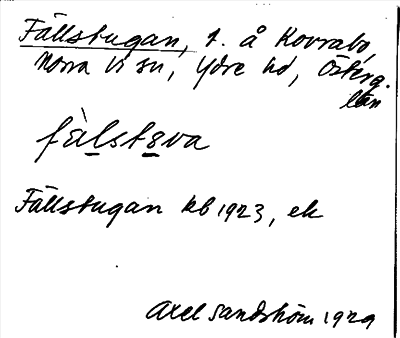 Fällstugan, t. å Korrabo,
Norra Vi sn, Ydre hd, Österg.
län
fàlstɵva
Fällstugan kb 1923, ek
Axel Sandström 1929